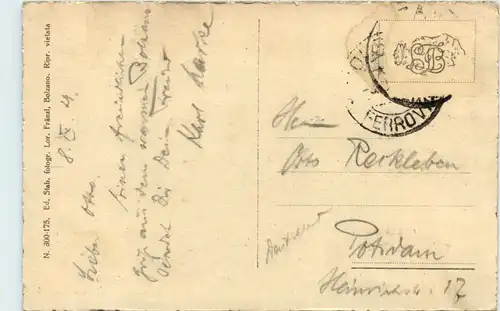 N. 300-175. Ed. Stab. fotogr. Lor. Fränzl, Bolzano. Ripr. vietata
8. IX. 29.
Lieber Otto.
Einen freundlichen
Gruß aus dem warmen Bozen
sendet Dir Dein Freund
Karl
FERROV
Herrn
Otto Reckleben
Potsdam
Heinrichstr. 17